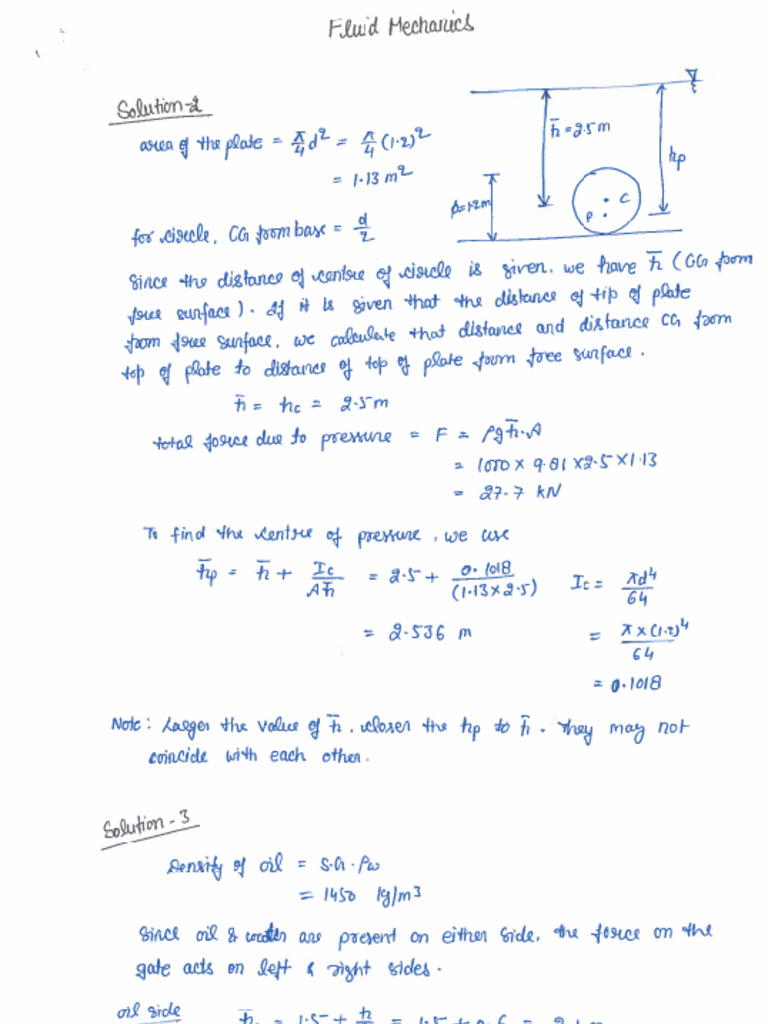 Fluid Mechanics
Solution-2
area of the plate = π/4 d² = π/4 (1.2)²
= 1.13 m²
h̄ = 2.5m
hp
D=1.2m
C
P
for circle, CG from base = d/2
Since the distance of centre of circle is given, we have h̄ (CG from
free surface). If it is given that the distance of tip of plate
from free surface, we calculate that distance and distance CG from
top of plate to distance of top of plate form free surface.
h̄ = hc = 2.5m
total force due to pressure = F = ρgh̄.A
= 1000 × 9.81 × 2.5 × 1.13
= 27.7 kN
To find the centre of pressure, we use
h̄p = h̄ + Ic/Ah̄ = 2.5 + 0.1018/(1.13×2.5) Ic = πd⁴/64
= 2.536 m = π×(1.2)⁴/64
= 0.1018
Note: Larger the value of h̄, closer the hp to h̄. They may not
coincide with each other.
Solution-3
Density of oil = S.G. ρw
= 1450 kg/m3
Since oil & water are present on either side, the force on the
gate acts on left & right sides.
oil side h̄ = 1.5 + h/ = 1.5 + 0.6 =